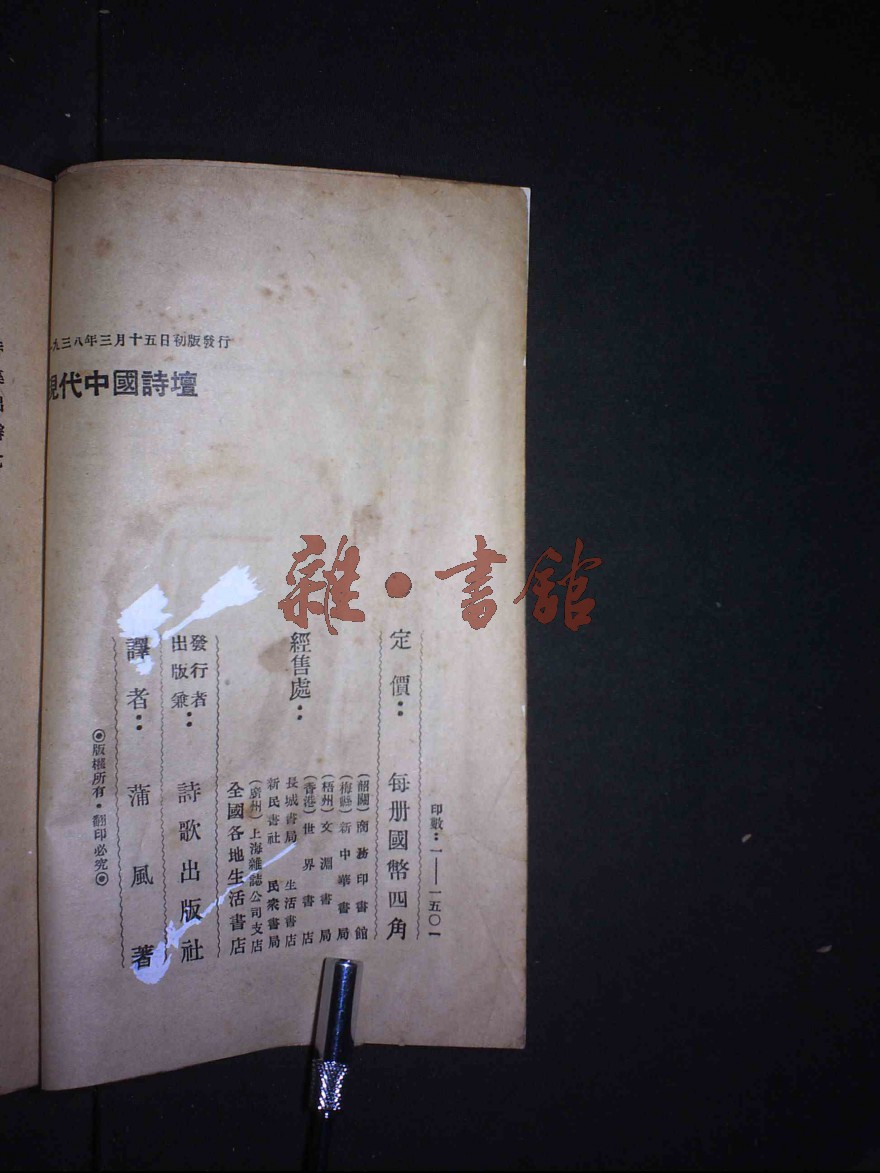 九三八年三月十五日初版發行
現代中國詩壇
雜•書館
印數：一——一五〇一
定價：每册國幣四角
經售處：
(韶關)商務印書館
(梅縣)新中華書局
(梧州)文淵書局
(香港)世界書店
長城書局 生活書店
新民書社 民衆書局
(廣州)上海雜誌公司支店
全國各地生活書店
發行者
出版兼：詩歌出版社
譯者：蒲風著
◎版權所有•翻印必究◎